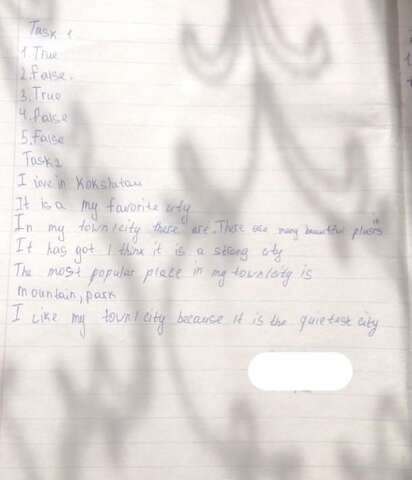 Task 1
1. True
2. False.
3. True
4. False
5. False
Task 2
I live in Kokshetau
It is a my favorite city
In my town/city there are. There are many beautiful plases
It has got I think it is a strong city
The most popular place in my town/city is
mountain, park
I like my town/city because it is the quietest city